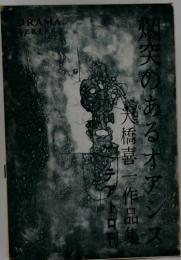 DRAMA
SERIES
煙突のあるオアシス
大橋喜一作品集
テアトロ刊